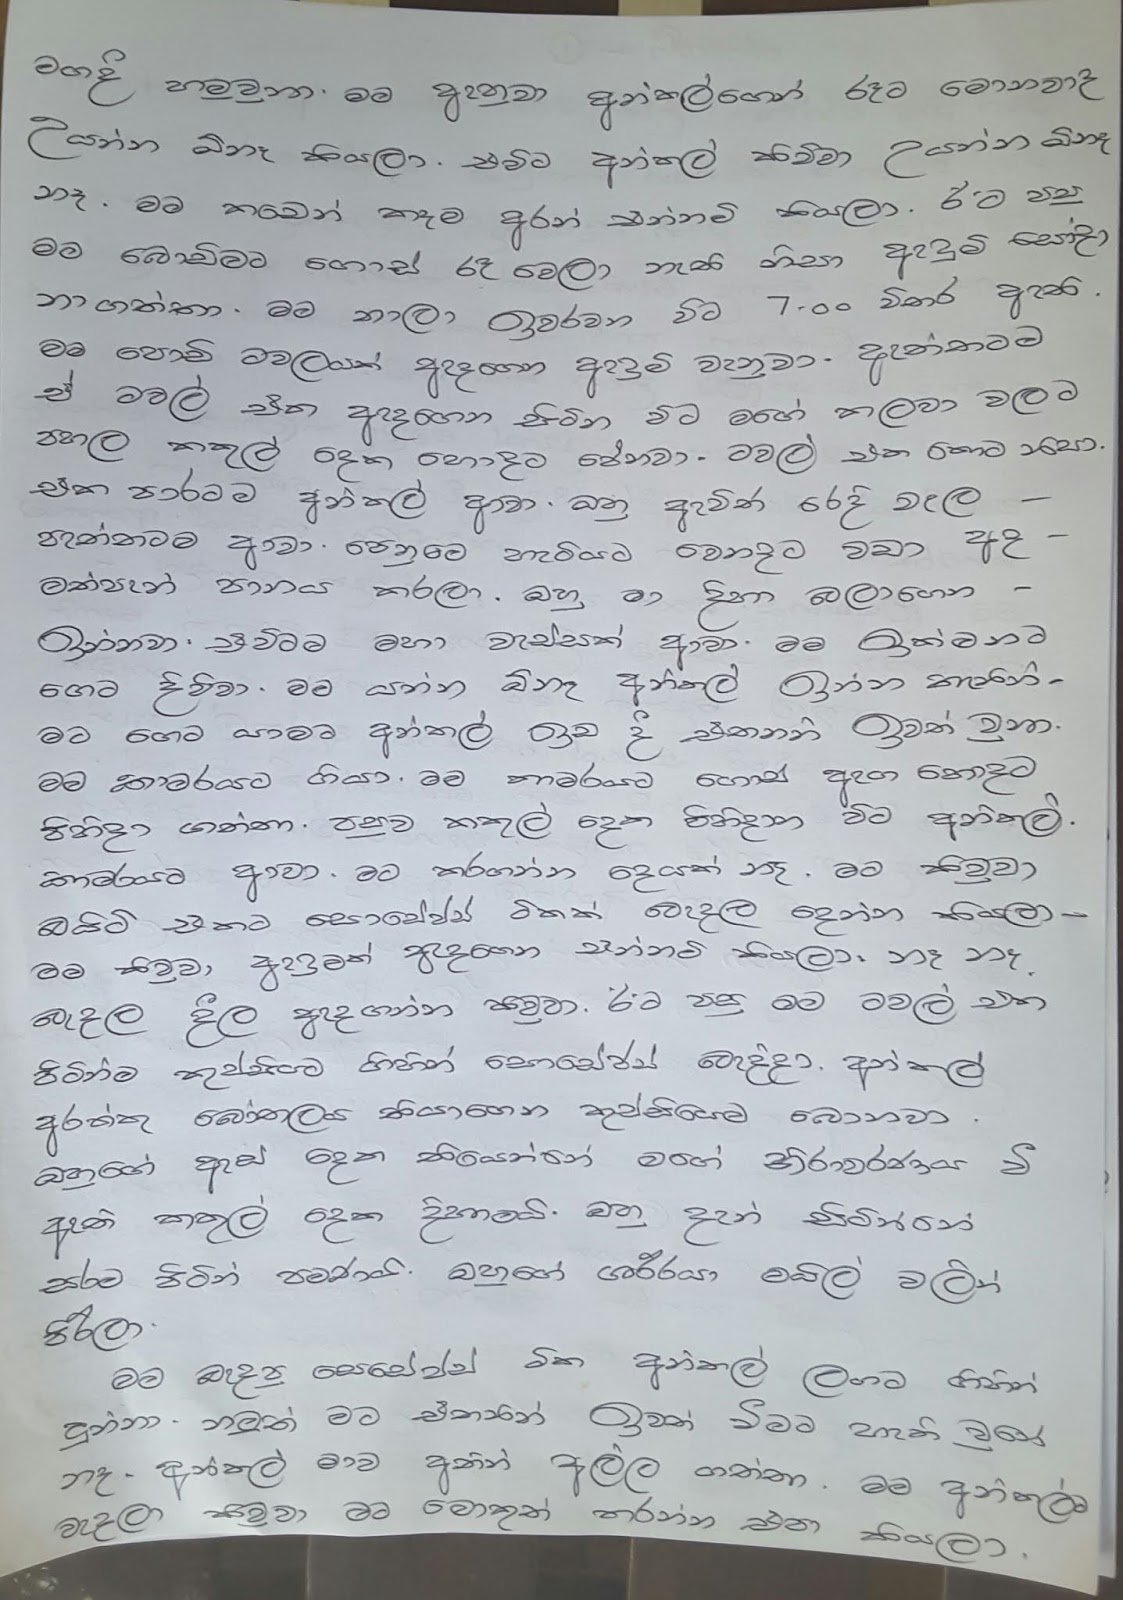 මගදී හමුවුනා. මම ඇහුවා අන්කල්ගෙන් රෑට මොනවාද
උයන්න ඕනෑ කියලා. එවිට අන්කල් කිව්වා උයන්න ඕනෑ
නෑ. මම කඩෙන් කෑම අරන් එන්නම් කියලා. ඊට පසු
මම බෝඩිමට ගොස් රෑ වෙලා නැති නිසා ඇඳුම් සෝදා
නාගත්තා. මම නාලා ඉවරවන විට 7.00 විතර ඇති.
මම පොඩි ටවලයක් ඇඳගෙන ඇඳුම් වැනුවා. ඇත්තටම
ඒ ටවල් එක ඇඳගෙන සිටින විට මගේ කලවා වලට
පහල කකුල් දෙක හොදට පේනවා. ටවල් එක කොට නිසා.
එක පාරටම අන්කල් ආවා. ඔහු ඇවිත් රෙදි වැල –
පැත්තටම ආවා. පෙනුමෙ හැටියට වෙනදට වඩා අද –
මත්පැන් පානය කරලා. ඔහු මා දිහා බලාගෙන –
ඉන්නවා. එවිටම මහා වැස්සක් ආවා. මම ඉක්මනට
ගෙට දිව්වා. මම යන්න ඕනෑ අන්කල් ඉන්න තැනින් –
මට ගෙට යාමට අන්කල් ඉඩ දී එතනින් ඉවත් වුනා.
මම කාමරයට ගියා. මම කාමරයට ගොස් ඇඟ හොදට
පිහිදා ගත්තා. පසුව කකුල් දෙක පිහිදාන විට අන්කල්.
කාමරයට ආවා. මට කරගන්න දෙයක් නෑ. මට කිවුවා
බයිට් එකට සොසේජස් ටිකක් බැදල දෙන්න කියලා –
මම කිවුවා ඇඳුමක් ඇඳගෙන එන්නම් කියලා. නෑ නෑ.
බැදල දීල ඇඳගන්න කිවුවා. ඊට පසු මම ටවල් එක
පිටින්ම කුස්සියට ගිහින් සොසේජස් බැද්දා. අන්කල්
අරක්කු බෝතලය තියාගෙන කුස්සියෙම බොනවා.
ඔහුගේ ඇස් දෙක තියෙන්නේ මගේ නිරාවරණය වී
ඇති කකුල් දෙක දිහාමයි. ඔහු දැන් සිටින්නේ
සරම පිටින් පමණයි. ඔහුගේ ශරීරයා මයිල් වලින්
පිරිලා.
මම බැදපු සොසේජස් ටික අන්කල් ලගට ගිහින්
දුන්නා. නමුත් මට එතනින් ඉවත් වීමට හැකි වුනේ
නෑ. අන්කල් මාව අතින් අල්ල ගත්තා. මම අන්කල්ට
වැදලා කිවුවා මට මොකුත් කරන්න එපා කියලා.